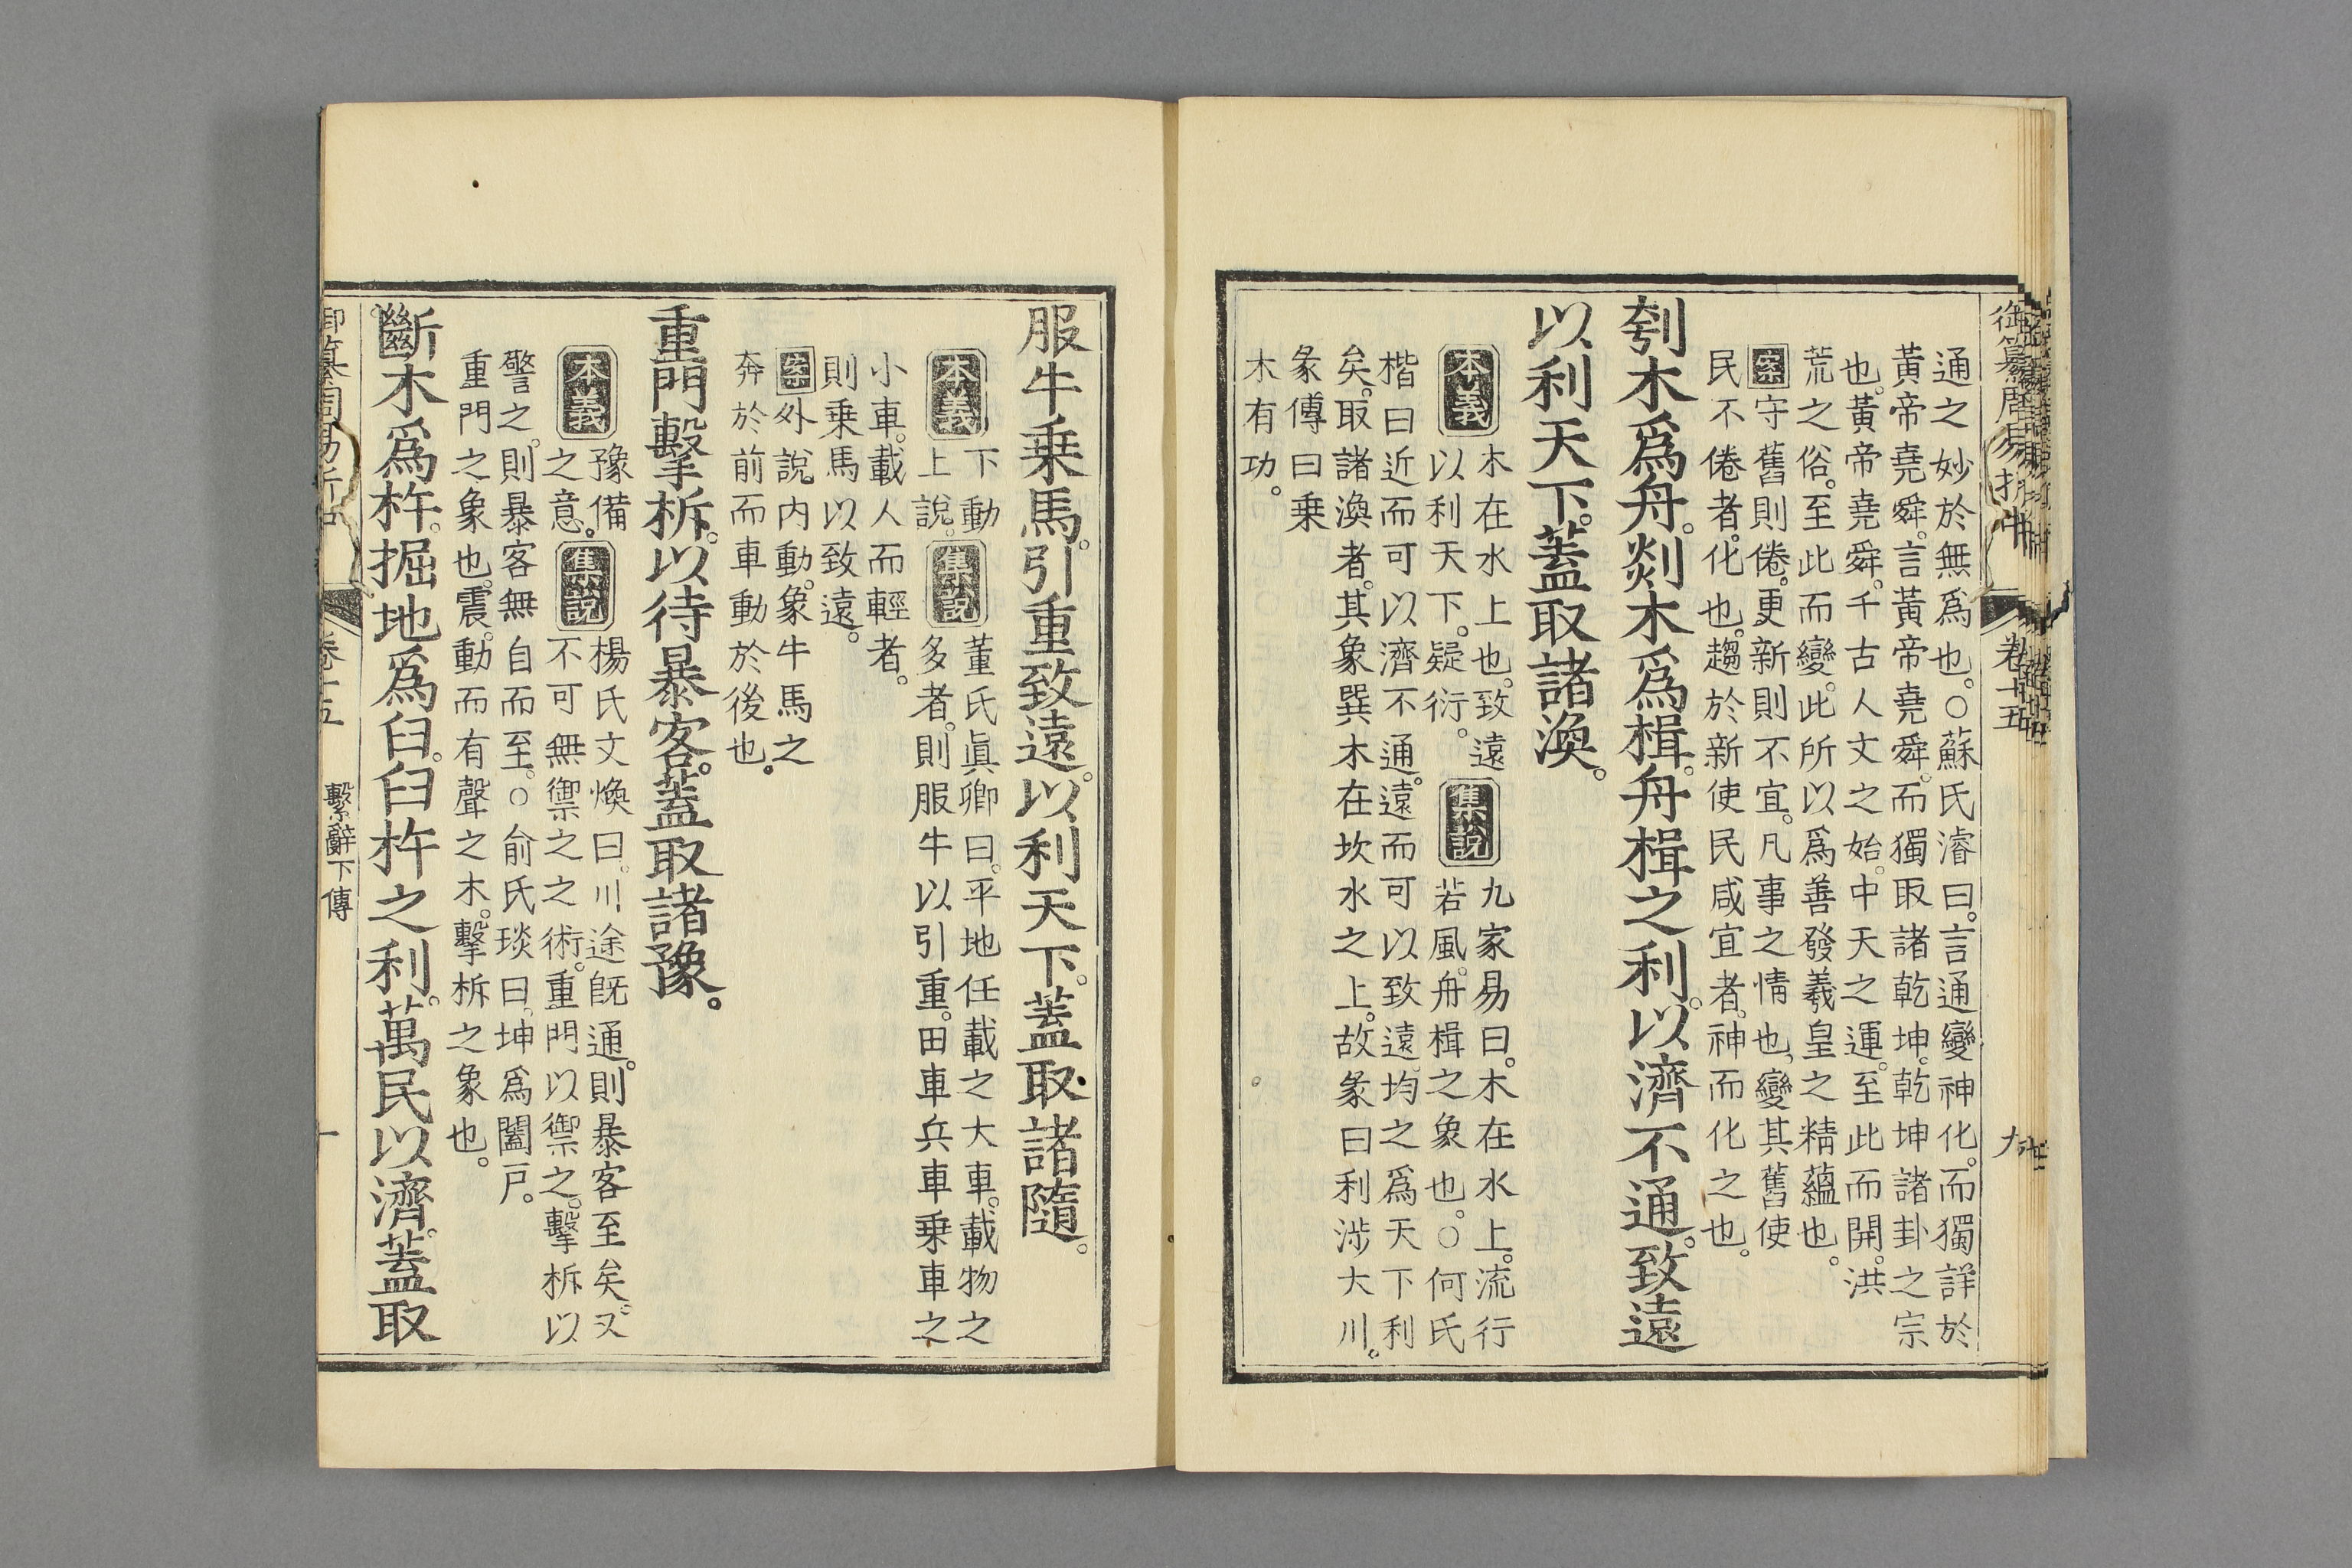 御纂周易折中
卷十五
九
通之妙於無爲也。○蘇氏濬曰。言通變神化。而獨詳於
黃帝堯舜。言黃帝堯舜。而獨取諸乾坤。乾坤諸卦之宗
也。黃帝堯舜。千古人文之始。中天之運。至此而開。洪
荒之俗。至此而變。此所以爲善發羲皇之精蘊也。
案守舊則倦。更新則不宜。凡事之情也。變其舊使
民不倦者。化也。趨於新使民咸宜者。神而化之也。
刳木爲舟。剡木爲楫。舟楫之利。以濟不通。致遠
以利天下。蓋取諸渙。
本義
木在水上也。致遠
以利天下。疑衍。
集說
九家易曰。木在水上。流行
若風。舟楫之象也。○何氏
楷曰近而可以濟不通。遠而可以致遠。均之爲天下利
矣。取諸渙者。其象巽木在坎水之上。故彖曰利涉大川。
彖傳曰乗
木有功。
服牛乗馬。引重致遠。以利天下。蓋取諸隨。
本義
下動
上說。
集說
董氏眞卿曰。平地任載之大車。載物之
多者。則服牛以引重。田車兵車乗車之
小車。載人而輕者。
則乗馬以致遠。
案外說。内動。象牛馬之
奔於前而車動於後也。
重門擊柝。以待暴客。蓋取諸豫。
本義
豫備
之意。
集說
楊氏文煥曰。川途旣通。則暴客至矣。又
不可無禦之之術。重門以禦之。擊柝以
警之。則暴客無自而至。○俞氏琰曰。坤爲闔戸。
重門之象也。震。動而有聲之木。擊柝之象也。
斷木爲杵。掘地爲臼。臼杵之利。萬民以濟。蓋取
御纂周易折中
卷十五
繫辭下傳
十